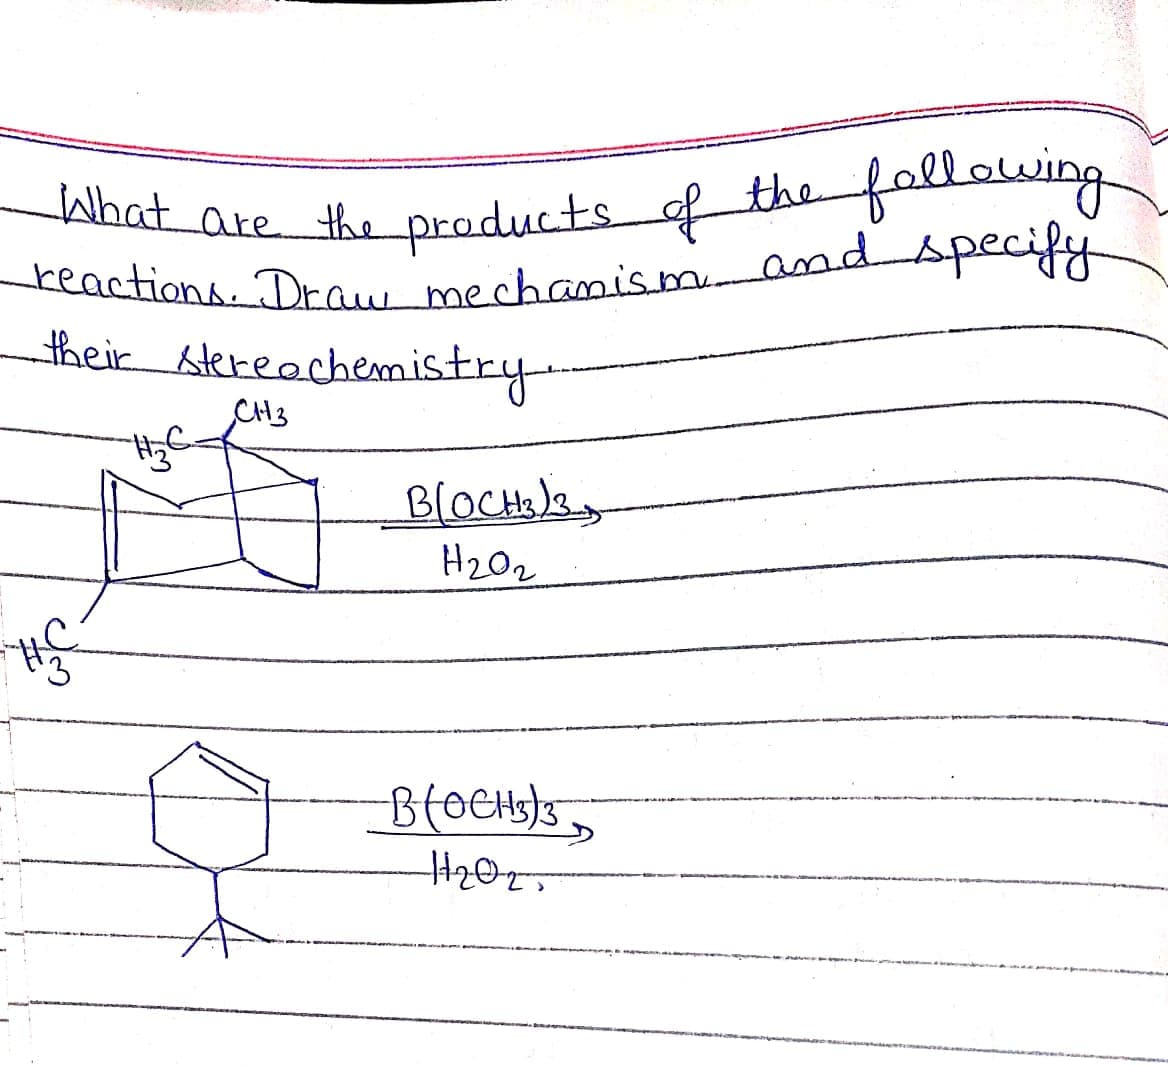 What are the products of the following
reactions. Draw mechanism and specify
their stereochemistry.
CH3
H3C
B(OCH3)3
H2O2
H3C
B(OCH3)3
H2O2,